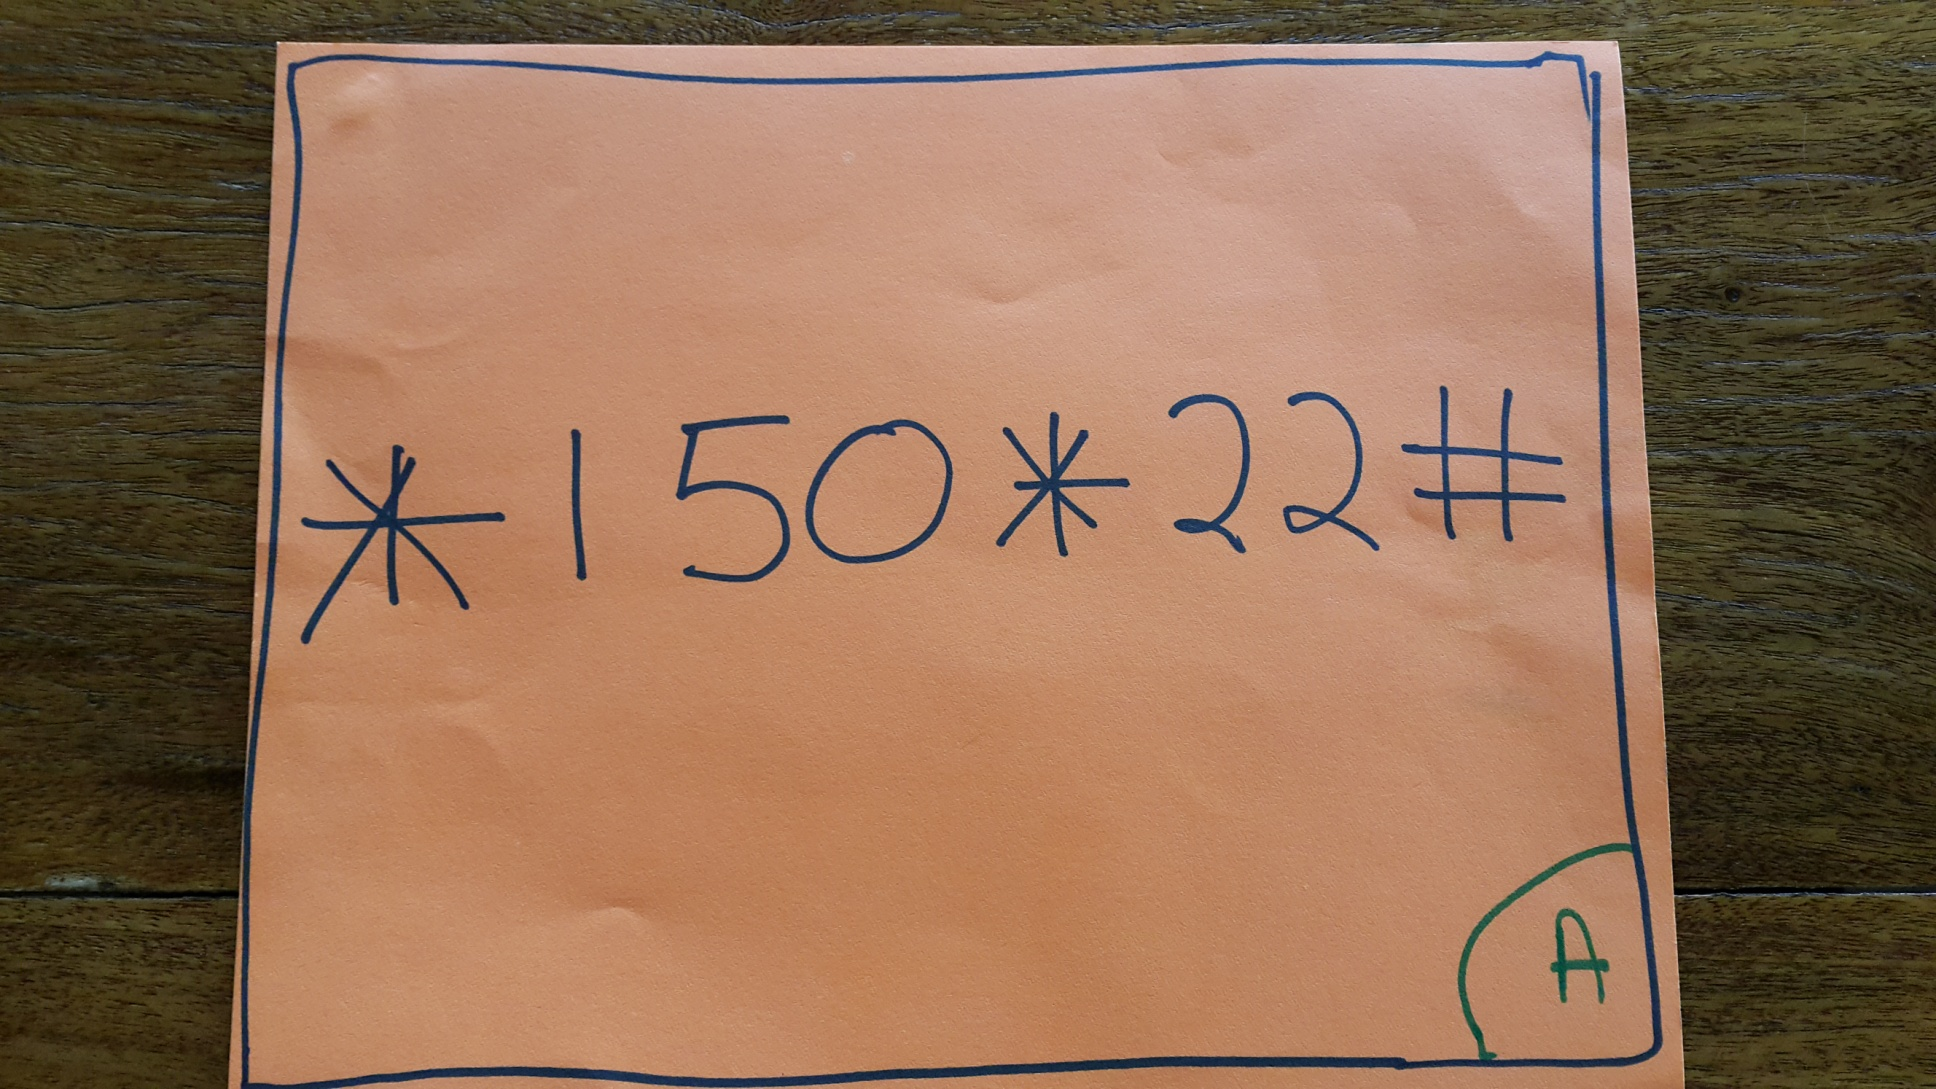 *150*22#
A